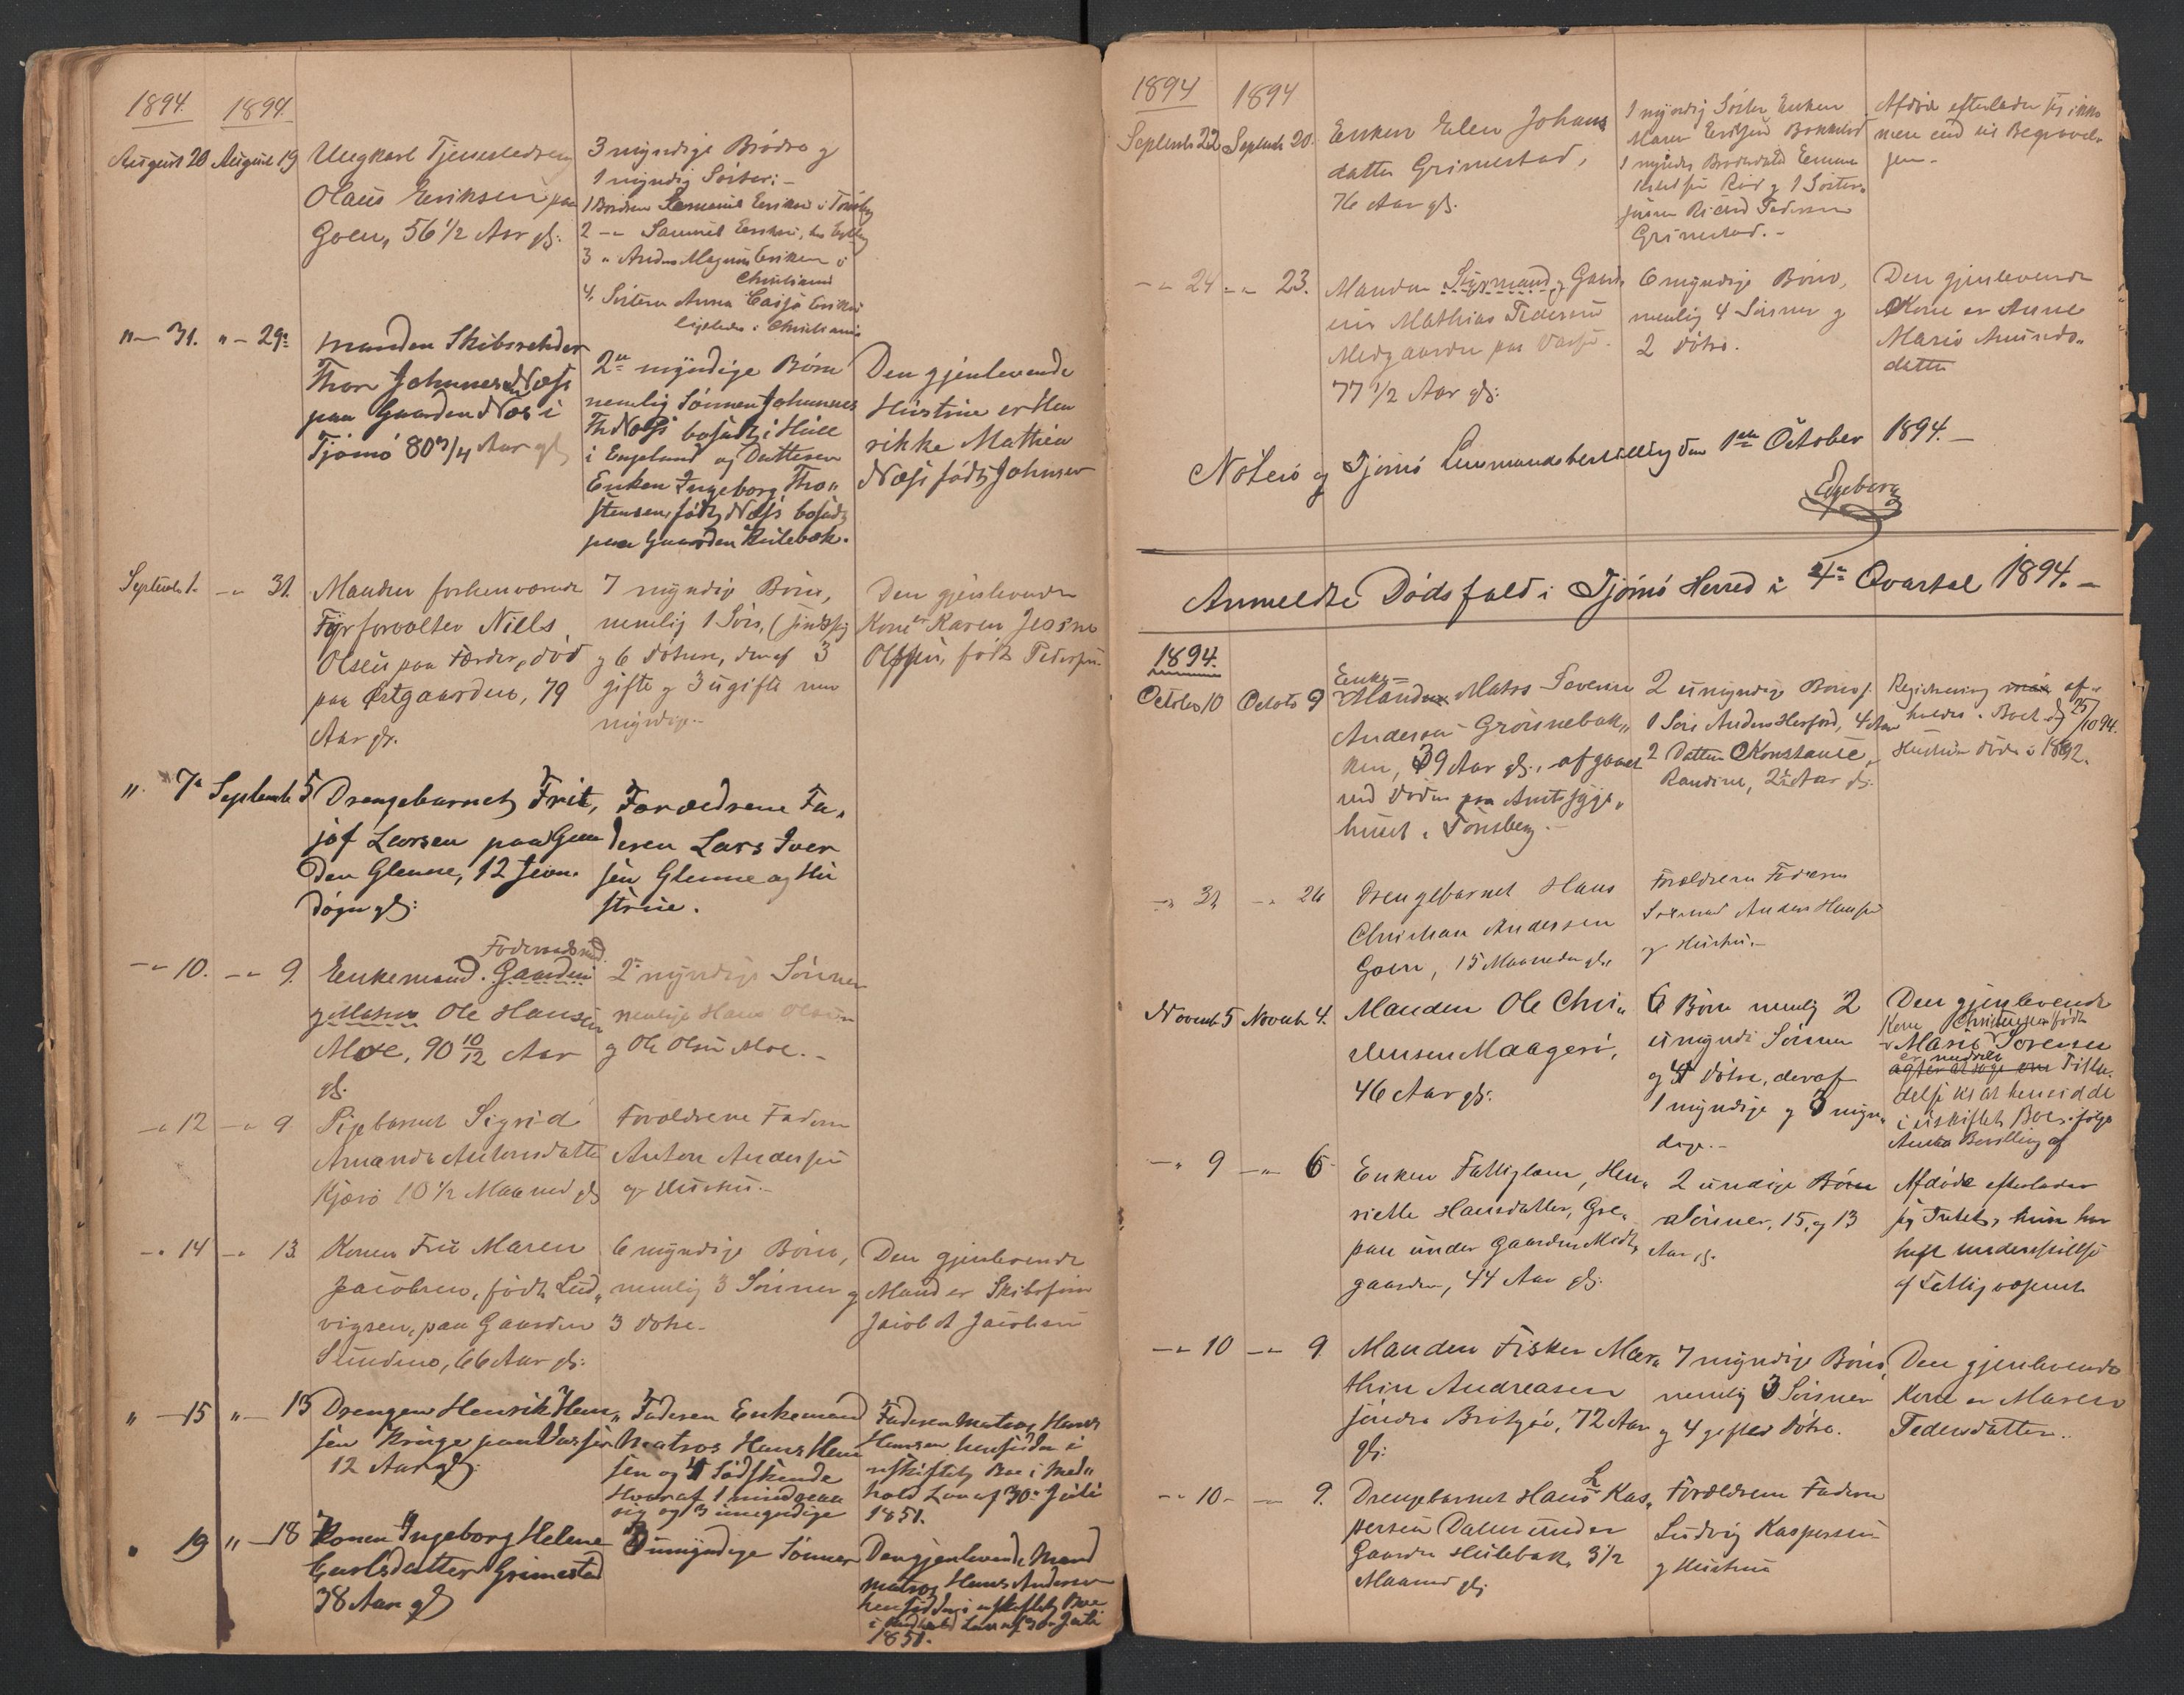 1894. 1894.
August 20 August 19 Ungkarl Tjenestedreng
Olaus Eriksen paa
Goen, 56 1/2 Aar gl:
3 myndige Brødre og
1 myndig Søster: –
1 Broderen Eriksen i Tønsberg
2 –"– Samuel Eriksen,
3 " Anders Magnus Eriksen i
Christiania
4, Søsteren Anna Caisa Eriksen
ligeledes i Christiania
"– 31. " – 29de Manden Skibsrehder
Thor Johnnesen Næss
paa Gaarden Næs i
Tjømø 80 3/4 Aar gl
2de myndige Børn
nemlig Sønnen Johannes
Th Næss bosadt i Hull
i England og Datteren
Enken Ingeborg Tho„
stensen, født Næss bosadt
paa Gaarden Hulebak.
Den gjenlevende
Hustrue er Hen
rikke Mathea
Næss født Johnsen
Septemb 1. –"– 31. Manden forhenværende
Fyrforvalter Niels
Olsen paa Færder, død
paa Østgaarden, 79
Aar gl.
7 myndige Børn,
nemlig 1 Søn,
og 6 Døtre, deraf 3
gifte og 3 ugifte men
myndige. –
Den gjenlevende
Kone er Karen Jesine
Olssen, født Pedersen
" 7de September 5 Drengebarnet Frit„
jof Larsen paa Gaar
den Glenne, 12 Samm.
døgn gl:
Forældrene Fa„
deren Lars Iver
sen Glenne og Hu
strue.
–"– 10. –"– 9. Enkemand. Gaardm
og Matros Ole Hansen
Moe, 90 10/12 Aar
gl.
2de myndige Sønner
nemlig Hans Olsen
og Ole Olsen Moe. –
–"– 12 –"– 9 Pigebarnet Sigrid
Amanda Antonsdatter
Kjærø 10 1/2 Maaned gl
Forældrene Faderen
Anton Andersen
og Hustru. –
–"– 14 –"– 13 Konen Fru Maren
Jacobsen, født Lud„
vigsen, paa Gaarden
Sundene, 66 Aar gl.
6 myndige Børn,
nemlig 3 Sønner og
3 Døtre –
Den gjenlevende
Mand er Skibsfører
Jacob A Jacobsen
" –15 "– 13 Drengen Henrik Han„
sen Kruge paa Vasser
12 Aar gl.
Faderen Enkemand
Matros Hans Han
sen og 4 Sødskende
Hvoraf 1 mindreaa
rig og 3 umyndige
Faderen Matros Hans
Hansen hensidder i
uskiftet Boe i Med„
hold Lov af 30te Juli
1851.
" 19 "–18 Konen Ingeborg Helene
Carlsdatter Grimestad
38 Aar gl
umyndige Sønner
Den gjenlevende Mand
Matros Hans Andersen
hensidder i uskiftet Boe
i Medhold Lov af 30te Juli
1851.
1894 1894
Septemb 22 Septemb 20. Enken Elen Johans
datter Grimestad,
76 Aar gl.
1 myndig Søster Enken
Maren
1 myndig Broderdatter Emma
og 1 Søster„
Pedersen
Grimestad. –
Afdøde efterlader sig ikke
mere end til Begravel„
sen –
–"– 24 –"– 23. Manden Styrmand og Gaard
eier Mathias Pedersen
Medgaarden paa Vasser.
77 1/2 Aar gl:
6 myndige Børn,
nemlig 4 Sønner og
2 Døtre.
Den gjenlevende
Kone er Anne
Marie Amunds„
datter
Nøterø og Tjømø Lensmandsbestilling den 1ste October 1894. –
Engeberg
Anmeldte Dødsfald i Tjømø Herred i 4de Qvartal 1894. –
1894.
October 10 October 9 Enke=
Manden Matros Severin
Anderson Grønnebak„
ken, 39 Aar gl., afgaaet
ved Døden paa Amtssyge„
huset i Tønsberg. –
2 umyndige Børn:
1 Søn Anders Herford, 4 Aar
2 Datter Konstance
Randine, 2 Aar gl.
Registrering af„
holdes i Boet d 25/10 94.
Hustruen døde i 1892.
–"– 31 –"– 26 Drengebarnet Hans
Christian Andersen
Goen, 15 Maaneder gl.
Forældrene Faderen
Sømand Anders Hansen
og Hustru. –
Novemb 5 Novemb 4. Manden Ole Chri„
stensen Maagerø,
46 Aar gl:
6 Børn nemlig 2
umyndi Sønner
og 4 Døtre, deraf
1 myndige og 3 umyn„
dige. –
Den gjenlevende
Kone Christensen født
Marie Sørensen
er meddelt
agter at søge om Tilla„
delse til at hensidde
i uskiftet Boe ifølge
Amts Bevilling af
–"– 9 –"– 6 Enken Fattiglem, Hen„
riette Hansdatter, Gre„
pan under Gaarden Med„
gaarden, 44 Aar gl:
2 undige Børn
Sønner, 15 og 13
Aar gl.
Afdøde efterlader
sig Intet, hun har
havt understøttelse
af Fattigvæsenet
–"– 10 –"– 9. Manden Fisker Mar„
thin Andreasen
søndre Brøtsø, 72 Aar
gl:
7 myndige Børn,
nemlig 3 Sønner
og 4 gifte Døtre.
Den gjenlevende
Kone er Maren
Pedersdatter.
–"– 10 – –"– 9. Drengebarnet Hans L Kas„
persen Dalen under
Gaarden Hulebak, 3 1/2
Maaned gl:
Forældrene Faderen
Ludvig Kaspersen
og Hustrue